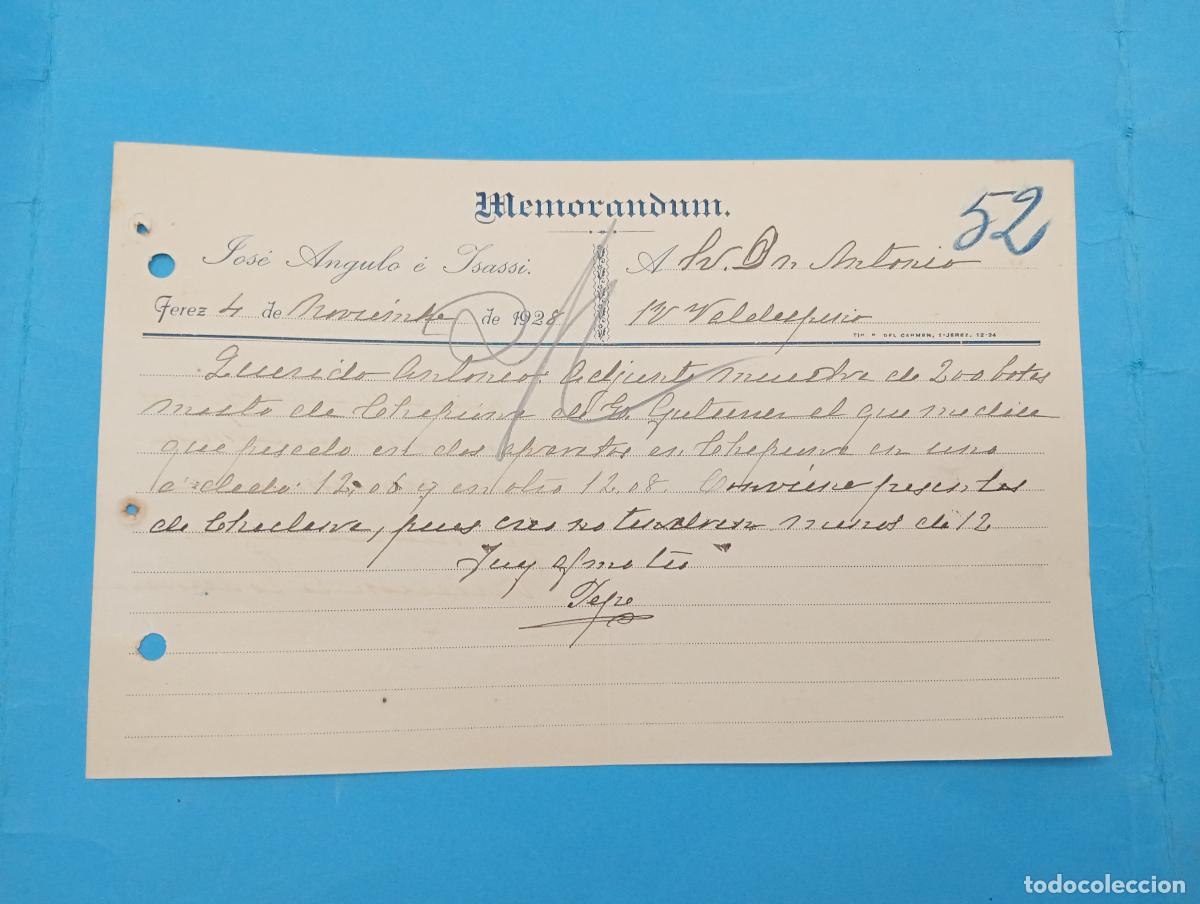 Memorandum.
52
José Angulo é Isassi.
A Sr. Dn Antonio
Jerez 4 de Noviembre de 1928
Valdespino
TIP. DEL CARMEN, 1-JEREZ. 12-24
Querido Antonio: Adjunto muestra de 200 botas
mosto de Chipiona de Gutierrez el que me dice
que pesado en dos aparatos en Chipiona en uno
a dado: 12.06 y en otro 12.08. Conviene pesientes
de Chiclana, pues creo no tendran menos de 12
Tuy afmo tio
Pepe
todocoleccion